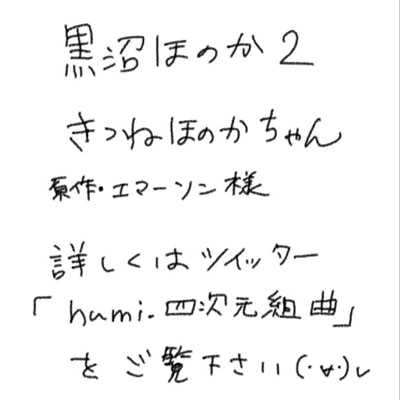 黒沼ほのか2
きつねほのかちゃん
原作・エマーソン様
詳しくはツイッター
「humi.四次元組曲」
をご覧下さい(・∀・)ﾉ